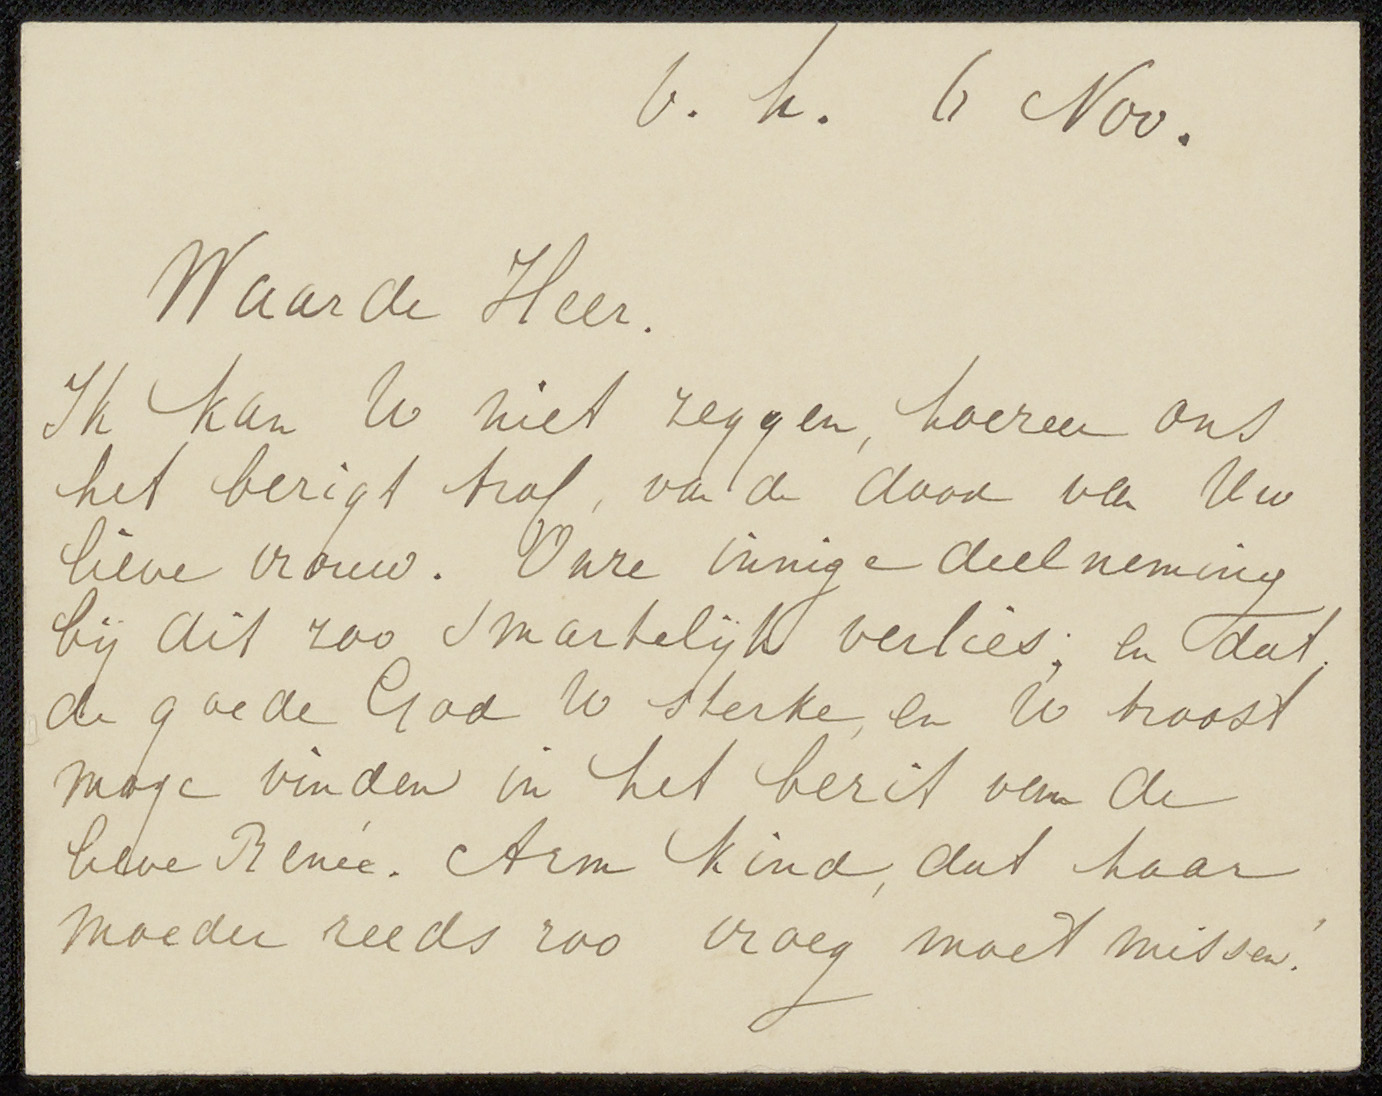 v. h. 6 Nov.
Waarde Heer.
Ik kan U niet zeggen, hoezeer ons
het berigt trof, van de dood van Uw
lieve vrouw. Onze innige deelneming
bij dit zoo smartelijk verlies; en dat
de goede God U sterke, en U troost
moge vinden in het bezit van de
lieve Renée. Arm kind, dat haar
moeder reeds zoo vroeg moet missen!